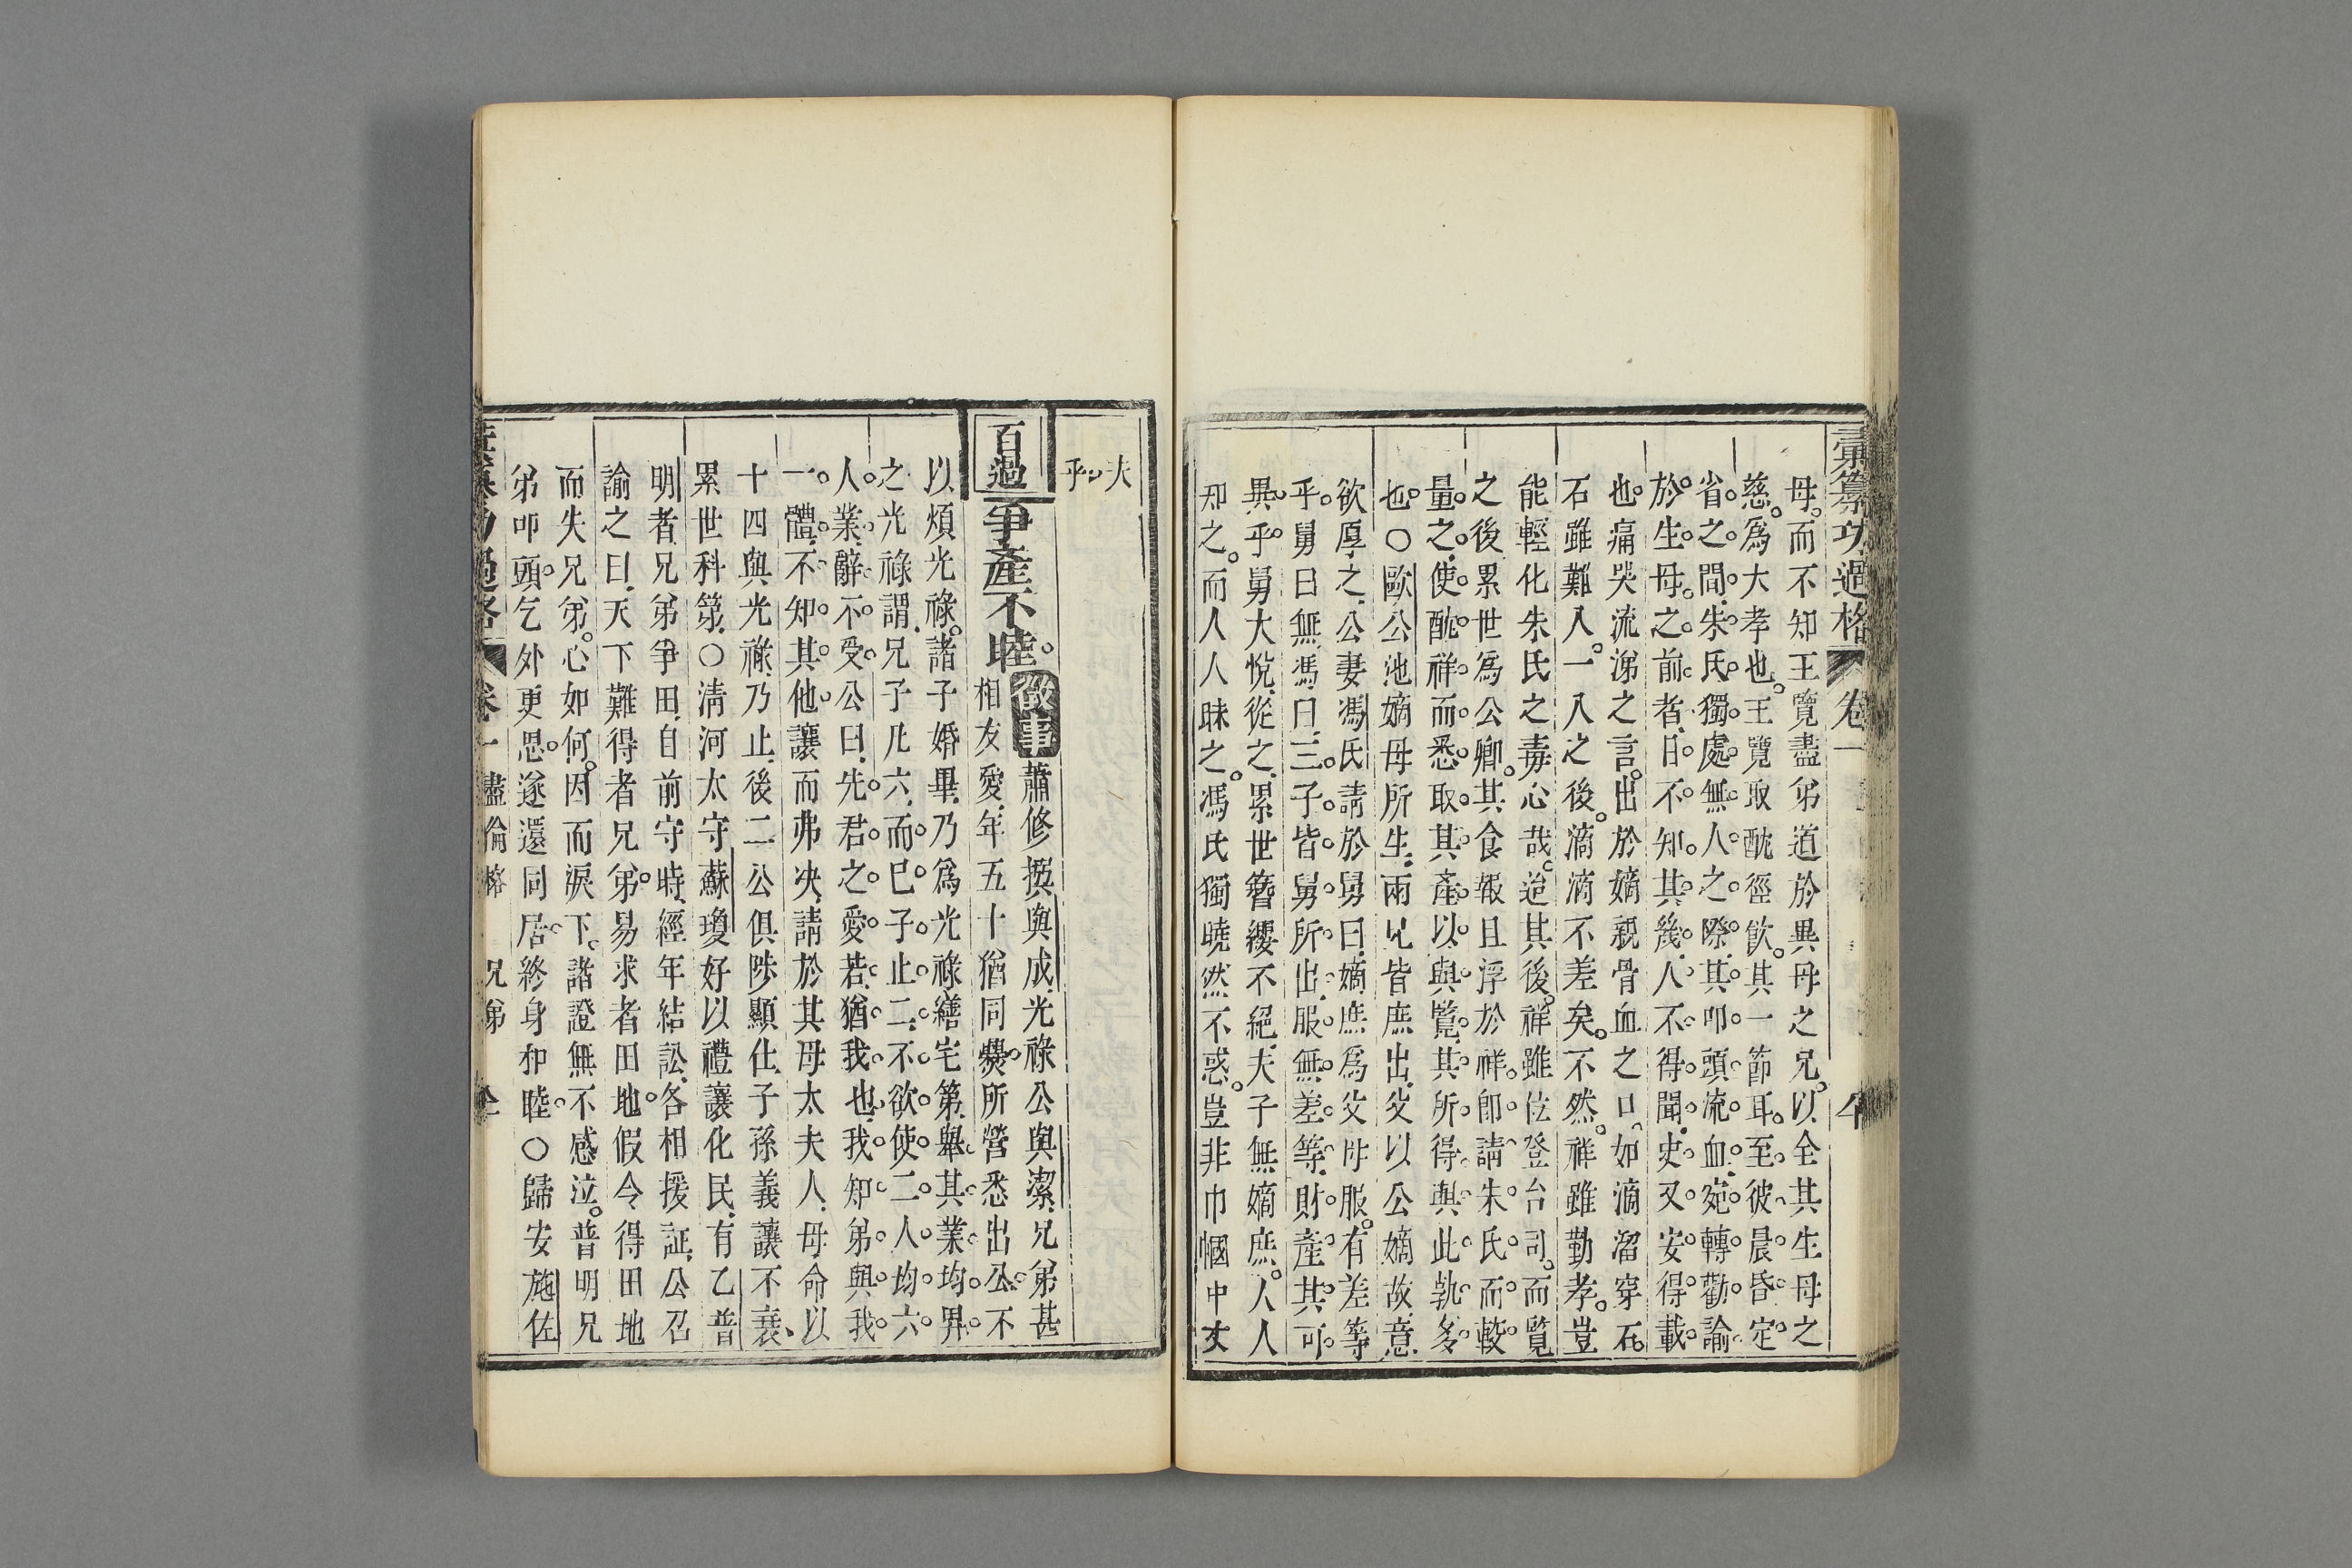 彙纂功過格 卷一
母而不知王覽盡弟道於異母之兄以全其生母之
慈爲大孝也王覽取酖徑飮其一節耳至彼晨昏定
省之間朱氏獨處無人之際其叩頭流血宛轉勸諭
於生母之前者日不知其幾人不得聞史又安得載
也痛哭流涕之言出於嫡親骨血之口如滴溜穿石
石雖難入一入之後滴滴不差矣不然祥雖勤孝豈
能輕化朱氏之毒心哉迨其後祥雖位登台司而覽
之後累世爲公卿其食報且浮於祥卽請朱氏而較
量之使酖祥而悉取其產以與覽其所得與此孰多
也○歐公池嫡母所生兩兄皆庶出父以公嫡故意
欲厚之公妻馮氏請於舅曰嫡庶爲父母服有差等
乎舅曰無馮曰三子皆舅所出服無差等財產其可
異乎舅大悅從之累世簪纓不絕夫子無嫡庶人人
知之而人人昧之馮氏獨曉然不惑豈非巾幗中丈
夫
乎
百過 爭產不睦 徵事 蕭修撰與成光祿公與潔兄弟甚
相友愛年五十猶同爨所營悉出公不
以煩光祿諸子婚畢乃爲光祿繕宅第舉其業均畀
之光祿謂兄子凡六而己子止二不欲使二人均六
人業辭不受公曰先君之愛若猶我也我知弟與我
一體不知其他讓而弗决請於其母太夫人母命以
十四與光祿乃止後二公俱陟顯仕子孫義讓不衰
累世科第○淸河太守蘇瓊好以禮讓化民有乙普
明者兄弟爭田自前守時經年結訟各相援証公召
諭之曰天下難得者兄弟易求者田地假令得田地
而失兄弟心如何因而淚下諸證無不感泣普明兄
弟叩頭乞外更思遂還同居終身和睦○歸安施佐
彙纂功過格 卷一 盡倫格 兄弟